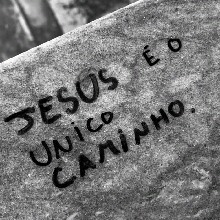 JESUS É O
UNICO
CAMINHO.